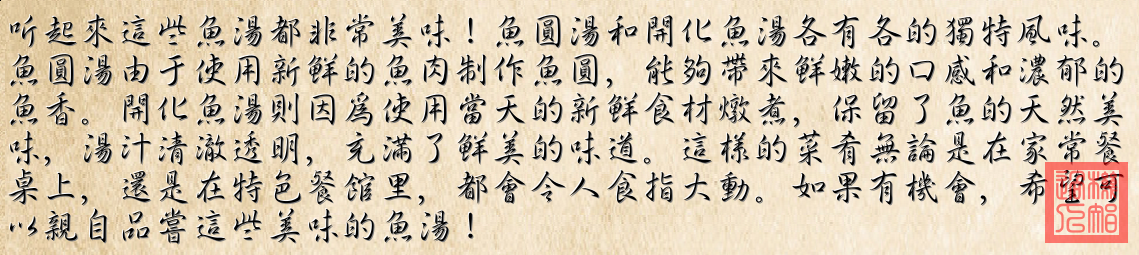 听起來這些魚湯都非常美味！魚圓湯和開化魚湯各有各的獨特風味。
魚圓湯由于使用新鮮的魚肉制作魚圓，能夠帶來鮮嫩的口感和濃郁的
魚香。開化魚湯則因爲使用當天的新鮮食材燉煮，保留了魚的天然美
味，湯汁清澈透明，充滿了鮮美的味道。這樣的菜肴無論是在家常餐
桌上，還是在特色餐館里，都會令人食指大動。如果有機會，希望可
以親自品嘗這些美味的魚湯！